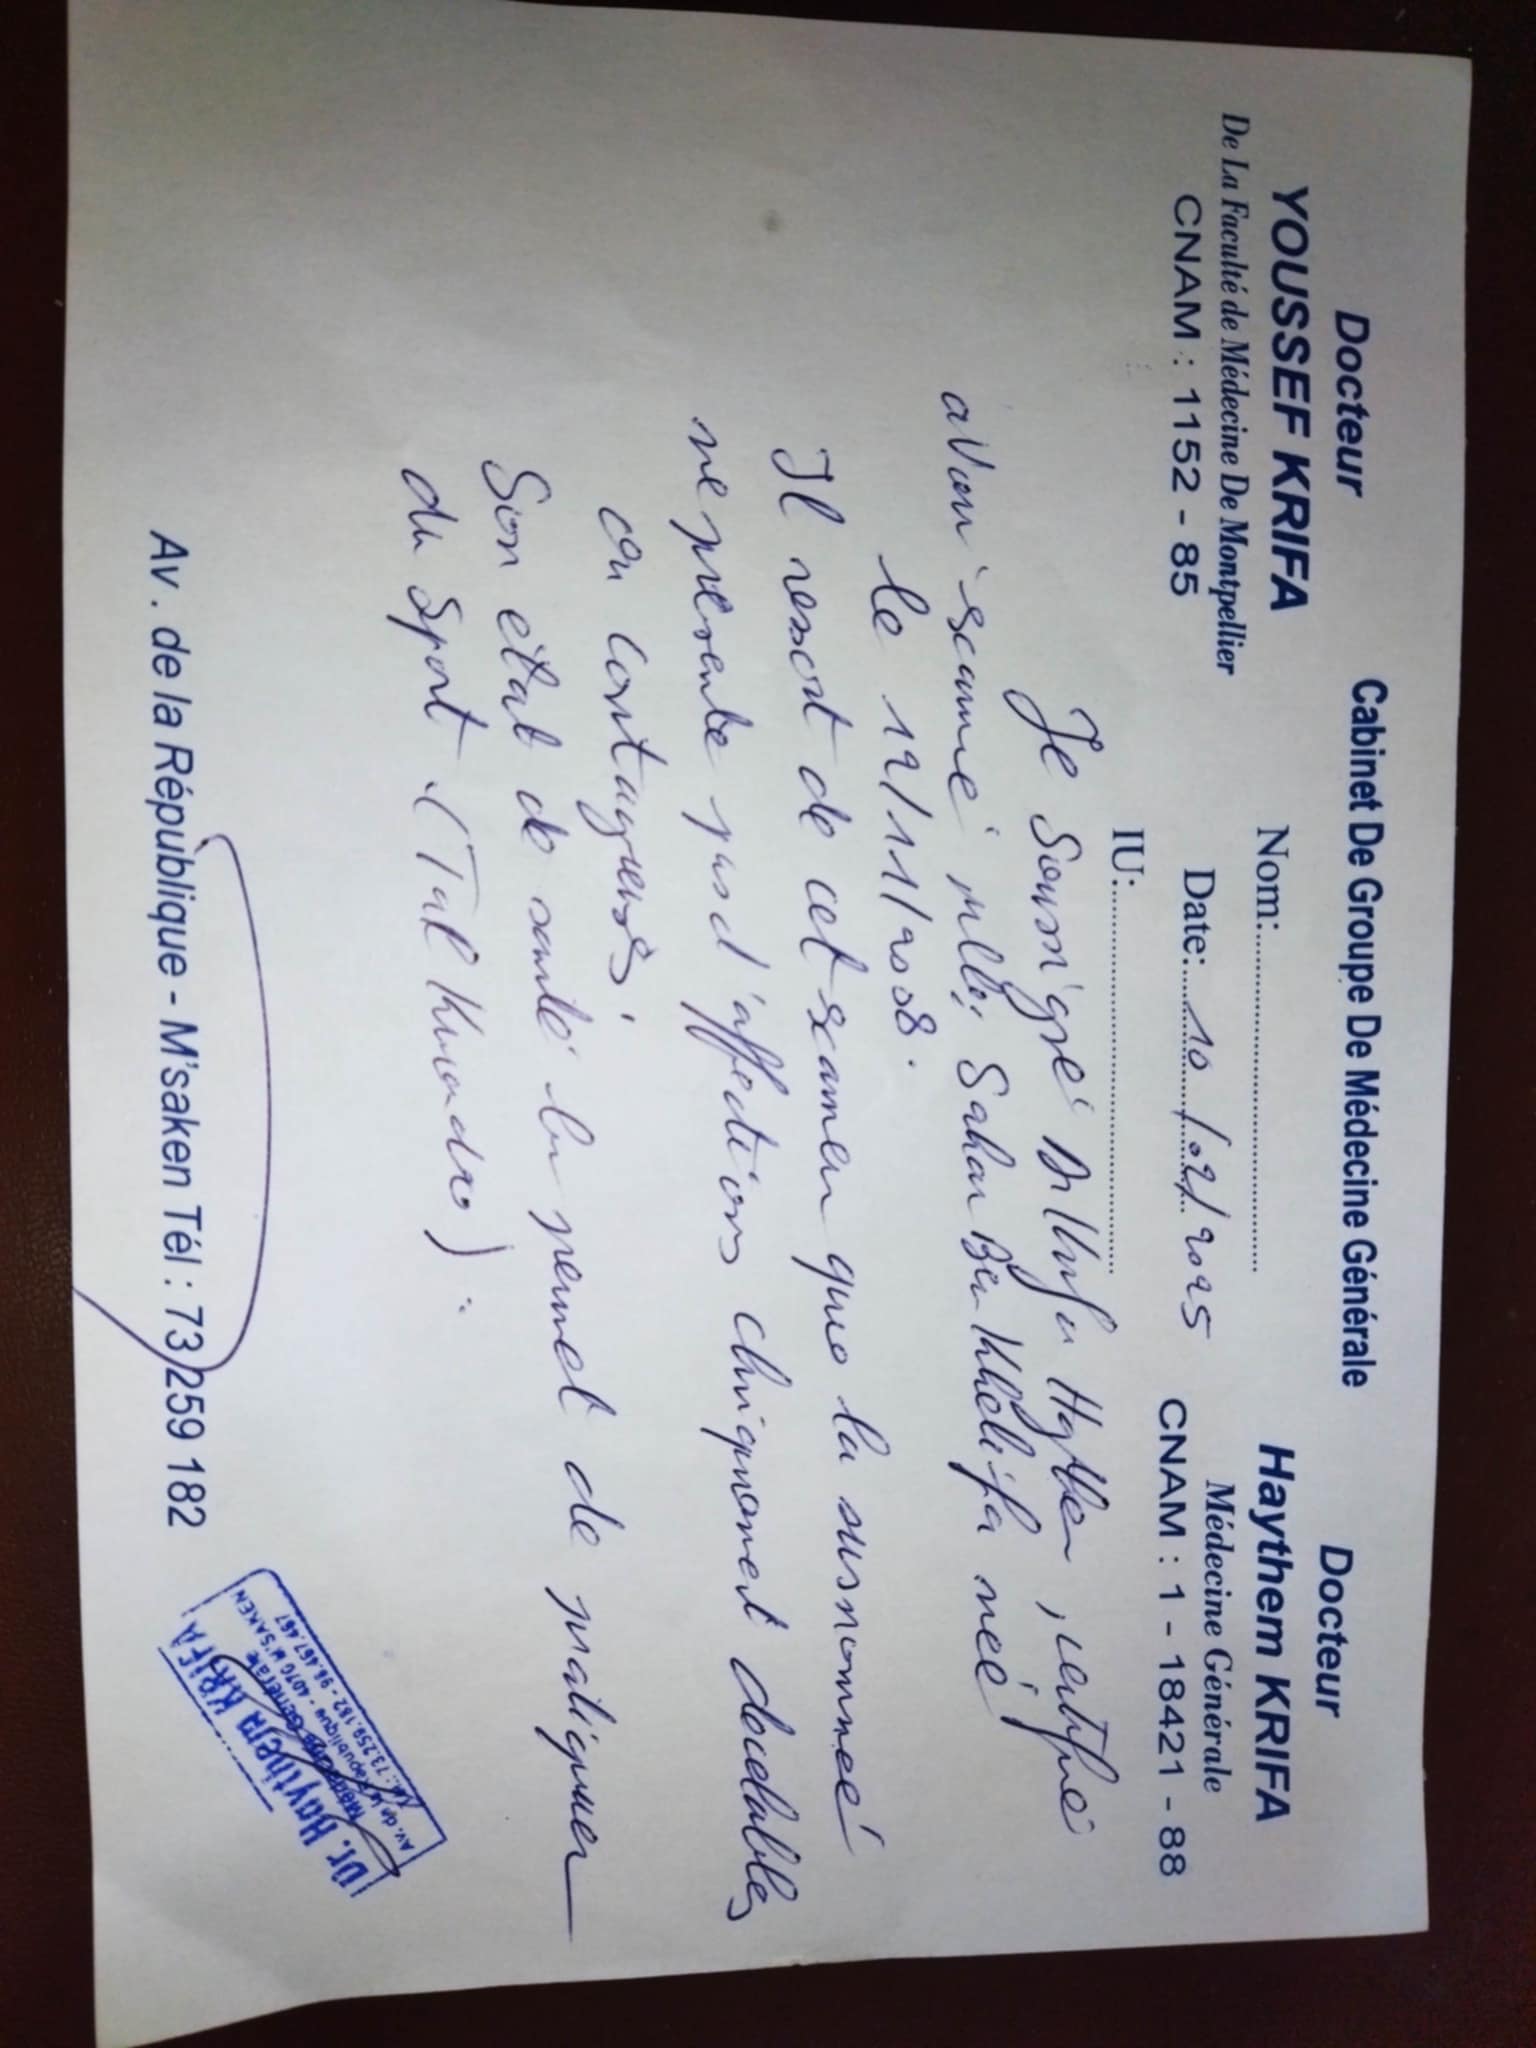 Cabinet De Groupe De Médecine Générale
Docteur
YOUSSEF KRIFA
De La Faculté de Médecine De Montpellier
CNAM : 1152 - 85
Docteur
Haythem KRIFA
Médecine Générale
CNAM : 1 - 18421 - 88
Nom:
Date: 10/02/2025
IU:
Je Soussigné Dr Haythem, certifie
avoir examiné mlle Sahar Ben Khelifa née
le 12/11/2008.
Il ressort de cet examen que la susnommée
ne présente pas d'affections cliniquement décelables
ou contagieuses
Son état de santé lui permet de pratiquer
du Sport
Dr. Haythem KRIFA
Médecine Générale
Av. de la République - 4070 M'SAKEN
Tél.: 73.259.182 - 98.467.467
Av. de la République - M'saken Tél : 73 259 182